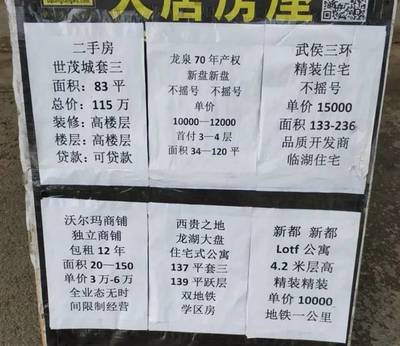 大居房屋
二手房
世茂城套三
面积：83 平
总价：115 万
装修：高楼层
楼层：高楼层
贷款：可贷款
龙泉 70 年产权
新盘新盘
不摇号 不摇号
单价
10000—12000
首付 3—4 层
面积 34—120 平
武侯三环
精装住宅
不摇号
单价 15000
面积 133-236
品质开发商
临湖住宅
沃尔玛商铺
独立商铺
包租 12 年
面积 20—150
单价 3万-6万
全业态无时
间限制经营
西贵之地
龙湖大盘
住宅式公寓
137 平套三
139 平跃层
双地铁
学区房
新都 新都
Lotf 公寓
4.2 米层高
精装精装
单价 10000
地铁一公里